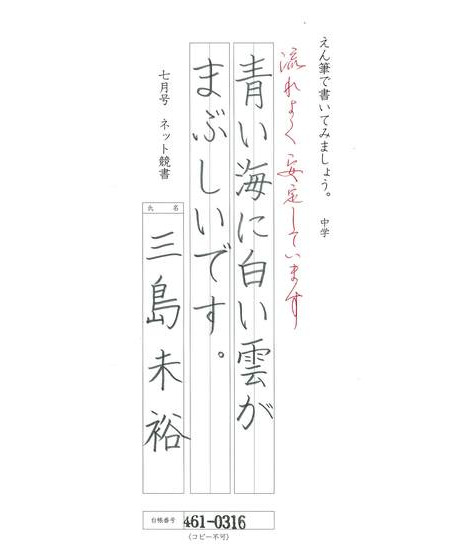 えん筆で書いてみましょう。 中学
流れよく安定しています
青い海に白い雲が
まぶしいです。
七月号 ネット競書
氏名
三島未裕
台帳番号 461-0316
(コピー不可)